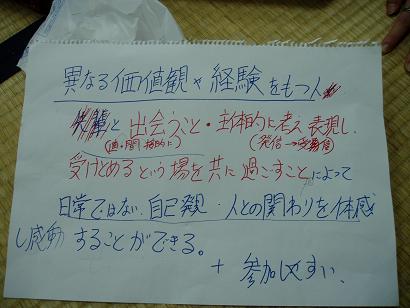 異なる価値観や経験をもつ人
と出会うこと・主体的に考え表現し
(直・間接的に) (発信→受信)
受けとめるという場を共に過ごすことによって
日常ではない自己発見・人との関わりを体感
し感動することができる。
+ 参加しやすい、